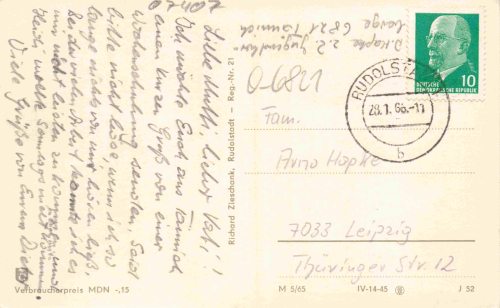 Liebe Mutti, lieber Vati!
Ich möchte Euch aus Tännich
einen kurzen Gruß von einer
senden. Seid
bitte nicht böse, wenn ich so
lange nichts von mir hören ließ.
Bei der vielen Arbeit konnte ich es
mir nicht leisten zu und
Heidi wollte Sonntags nicht
Viele Grüße von Eurem Dieter
Verbraucherpreis MDN -,15
Richard Zieschank, Rudolstadt - Reg.-Nr. 21
D. Hapke z. Z. Jugend
6821 Tännich
O-6821
DEUTSCHE
DEMOKRATISCHE REPUBLIK
10
RUDOLSTADT
28.1.66.-11
b
Fam.
Arno Hapke
7033 Leipzig
Thüringer Str. 12
M 5/65
IV-14-45
J 52